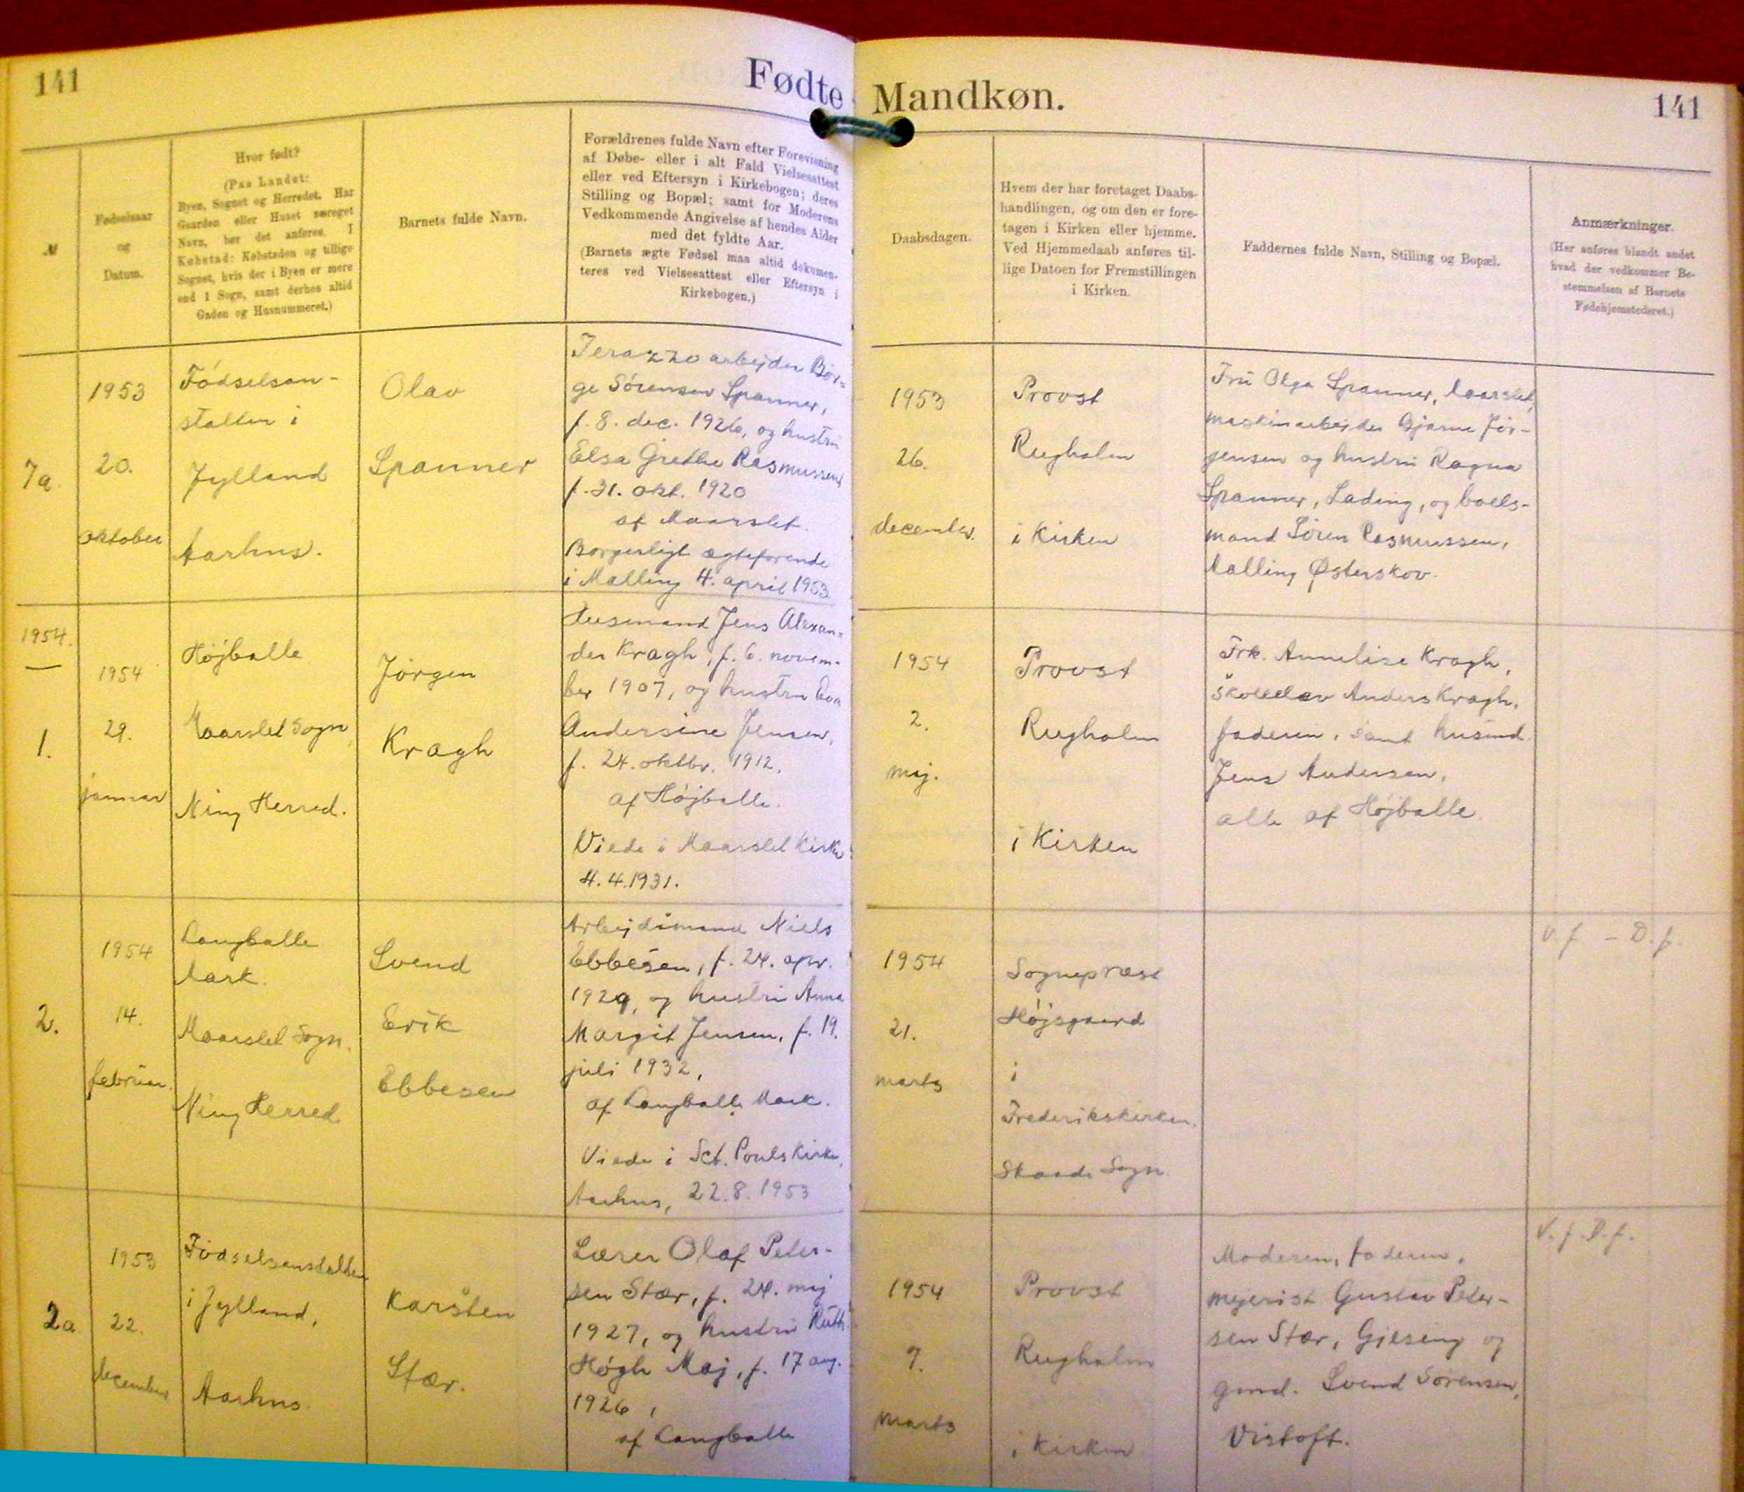 141
Fødte Mandkøn.
141
№
Fødselsaar
og
Datum.
Hvor født?
(Paa Landet:
Byen, Sognet og Herredet. Har
Gaarden eller Huset særeget
Navn, bør det anføres. I
Købstad: Købstaden og tillige
Sognet, hvis der i Byen er mere
end 1 Sogn, samt derhos altid
Gaden og Husnummeret.)
Barnets fulde Navn.
Forældrenes fulde Navn efter Forevisning
af Døbe- eller i alt Fald Vielsesattest
eller ved Eftersyn i Kirkebogen; deres
Stilling og Bopæl; samt for Moderens
Vedkommende Angivelse af hendes Alder
med det fyldte Aar.
(Barnets ægte Fødsel maa altid dokumen-
teres ved Vielsesattest eller Eftersyn i
Kirkebogen.)
Daabsdagen.
Hvem der har foretaget Daabs-
handlingen, og om den er fore-
tagen i Kirken eller hjemme.
Ved Hjemmedaab anføres til-
lige Datoen for Fremstillingen
i Kirken.
Faddernes fulde Navn, Stilling og Bopæl.
Anmærkninger.
(Her anføres blandt andet
hvad der vedkommer Be-
stemmelsen af Barnets
Fødehjemstedsret.)
7a.
1953
20.
oktober
Fødselsan-
stalten i
Jylland
Aarhus.
Olav
Spanner
Terazzoarbejder Bør-
ge Sörensen Spanner,
f. 8. dec. 1926, og hustru
Elsa Grethe Rasmussen
f. 31. okt. 1920
af Maarslet.
Borgerligt ægteforende
i Malling 4. april 1953
1953
26.
december
Provst
Rugholm
i Kirken
Fru Olga Spanner, Maarslet,
maskinarbejder Bjarne Jör-
gensen og hustru Ragna
Spanner, Lading, og boels-
mand Sören Rasmussen,
Malling Østerskov.
1954.
1.
1954
29.
januar
Højballe
Maarslet Sogn
Ning Herred.
Jörgen
Kragh
Husmand Jens Alexan-
der Kragh, f. 6. novem-
ber 1907, og hustru Eva
Andersine Jensen,
f. 24. oktbr. 1912.
af Højballe.
Viede i Maarslet Kirke
4.4.1931.
1954
2.
maj.
Provst
Rugholm
i Kirken
Frk. Annelise Kragh,
skoleelev Anders Kragh,
faderen, samt husmd.
Jens Andersen,
alle af Højballe.
2.
1954
14.
februar.
Langballe
Mark.
Maarslet Sogn.
Ning Herred
Svend
Erik
Ebbesen
Arbejdsmand Niels
Ebbesen, f. 24. apr.
1929, og hustru Anna
Margit Jensen, f. 19.
juli 1932,
af Langballe Mark.
Viede i Sct. Pouls Kirke,
Aarhus, 22.8.1953
1954
21.
marts
Sognepræst
Højsgaard
i
Frederikskirken,
Skaade Sogn
V.f - D.f.
2a
1953
22.
december
Fødselsanstalten
i Jylland,
Aarhus.
Karsten
Stær.
Lærer Olaf Peter-
sen Stær, f. 24. maj
1927, og hustru Ruth
Høgh Maj, f. 17 aug.
1926,
af Langballe
1954
7.
marts
Provst
Rugholm
i Kirken
Moderen, faderen,
mejerist Gustav Peter-
sen Stær, Gjesing og
gmd. Svend Sörensen,
Vistoft.
V.f. D.f.